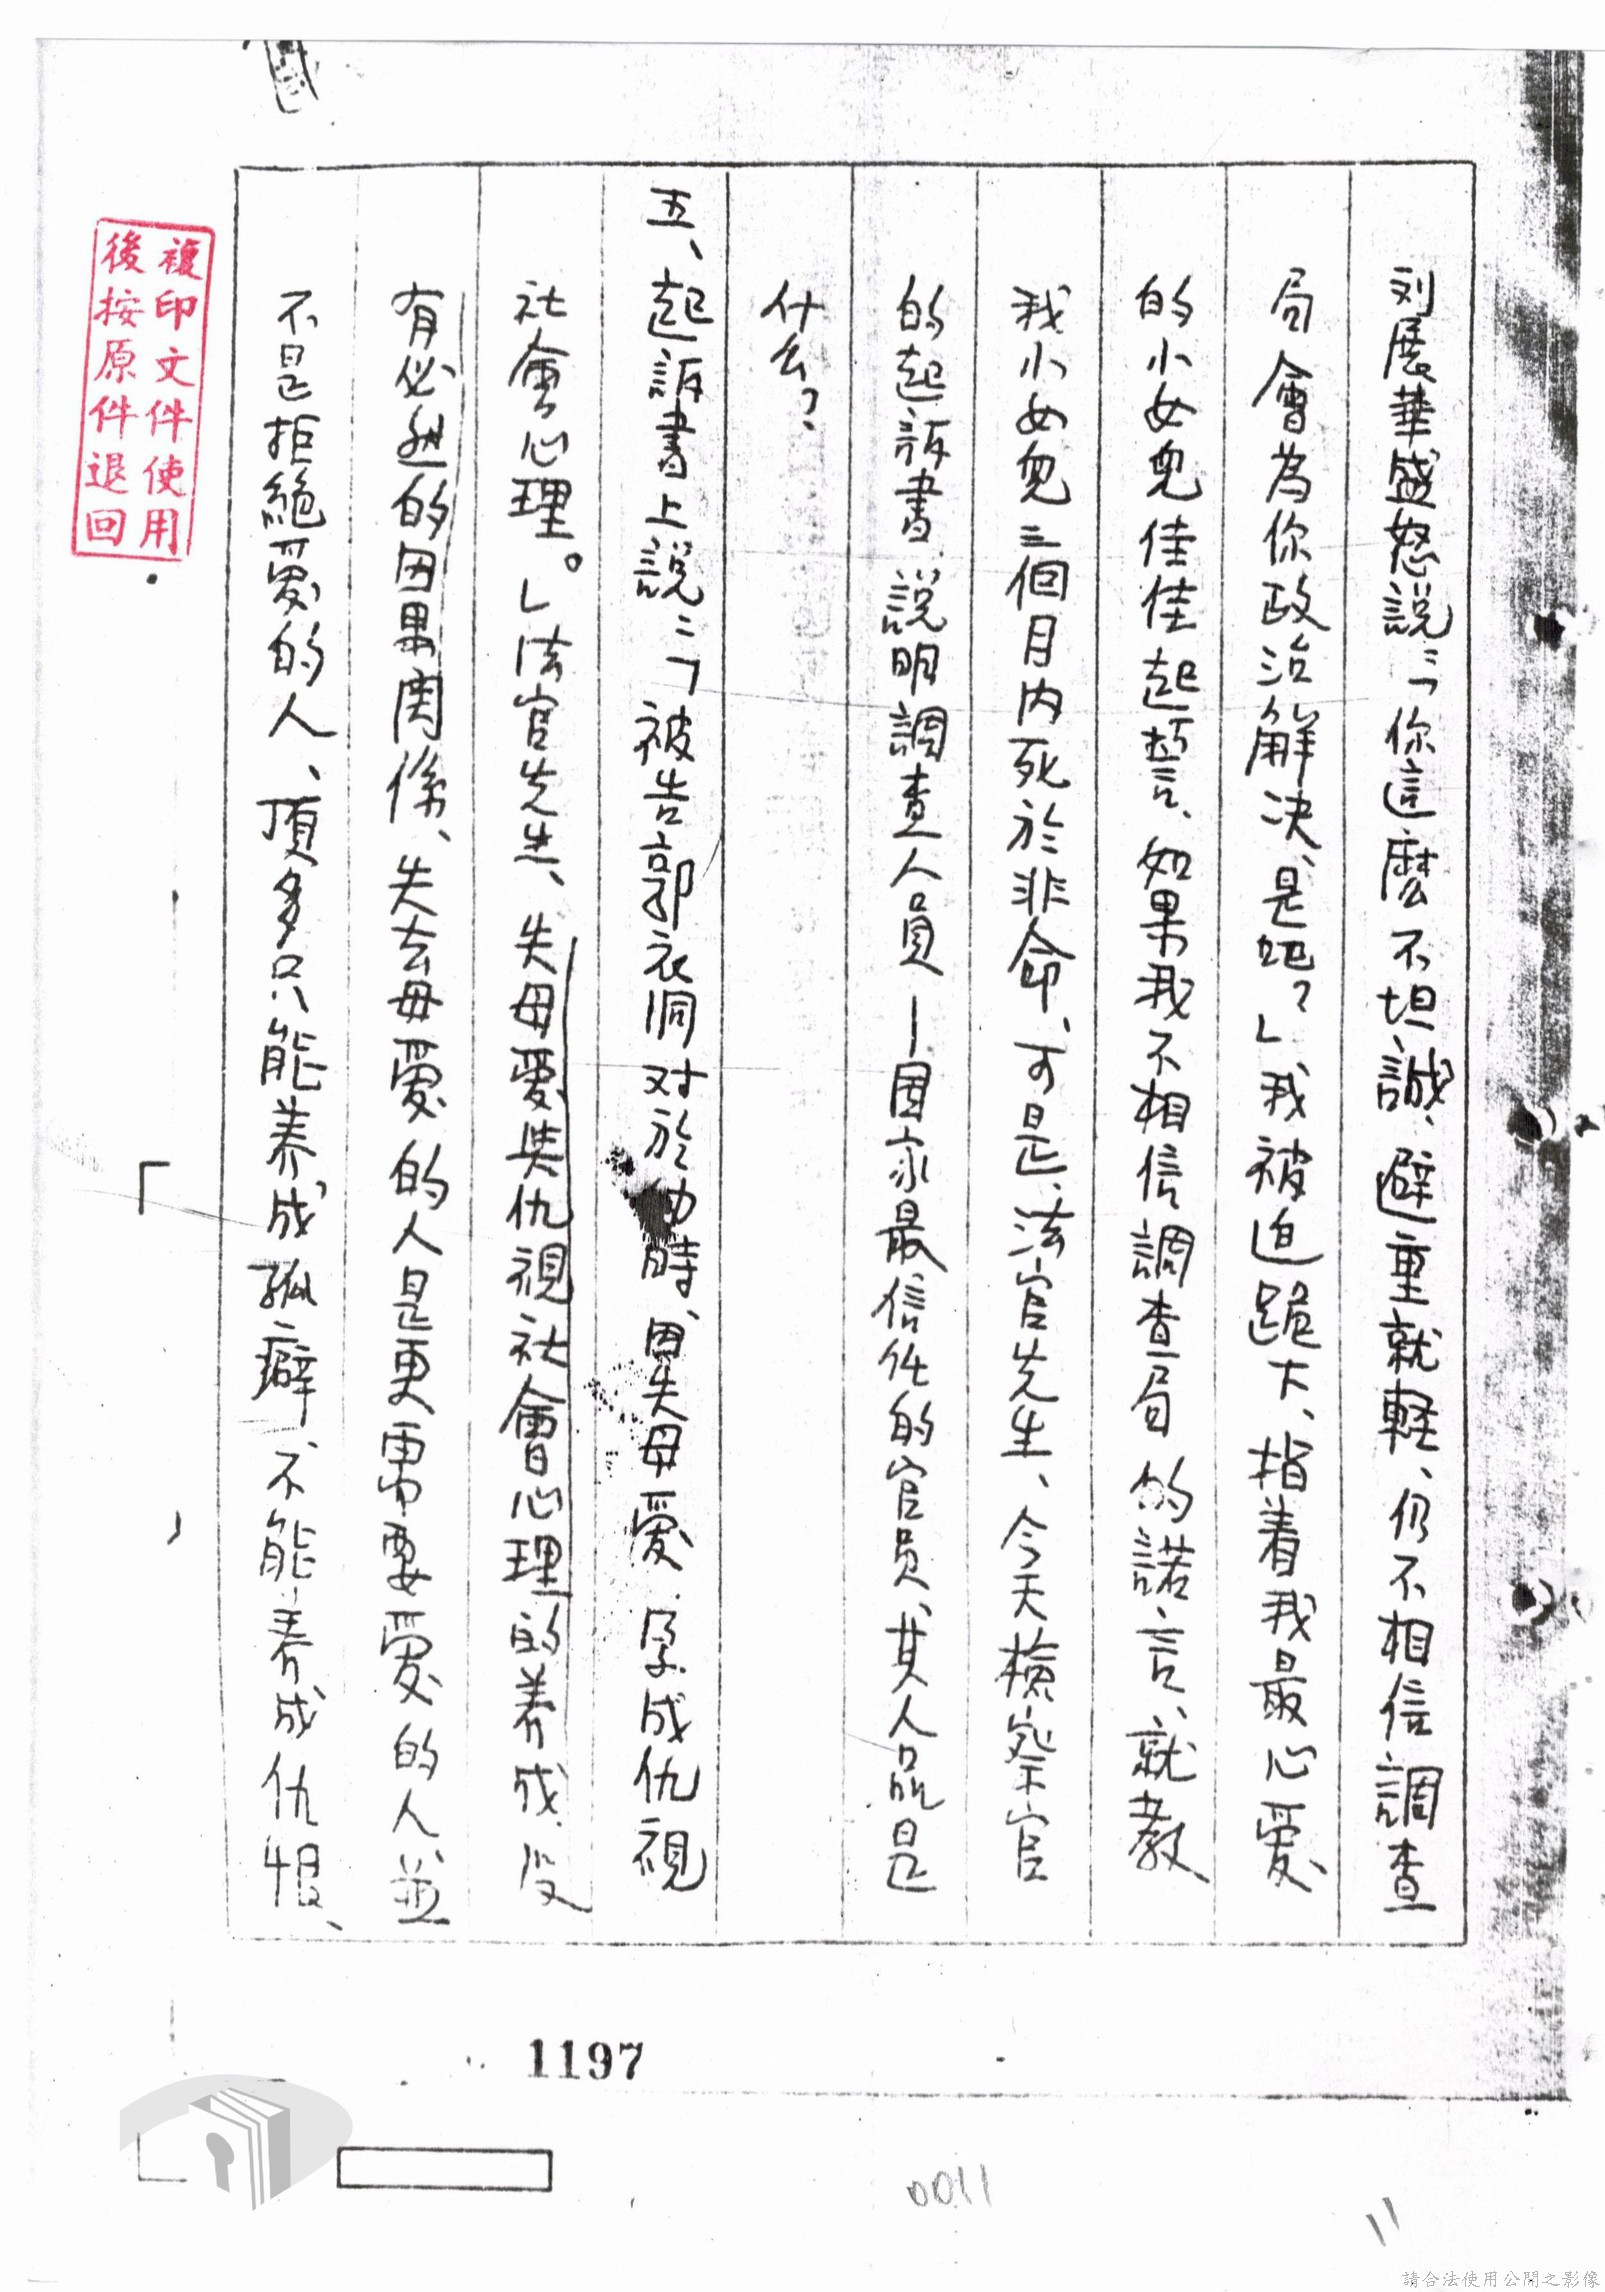 刘展華盛怒説：「你這麽不坦誠、避重就軽、仍不相信調查
局會為你政治解决、是吧？」我被迫跪下、指着我最心爱
的小女兒佳佳起誓、如果我不相信調查局的諾言、就教
我小女兒三個月内死於非命、可是、法官先生、今天檢察官
的起訴書、説明調查人員—国家最信任的官员、其人品是
什么？
五、起訴書上説：「被告郭衣洞对於幼時、因失母愛、孕成仇視
社會心理。」法官先生、失母愛與仇視社會心理的养成、没
有必然的因果関係、失去母愛的人是更需要愛的人、並
不是拒絶愛的人、頂多只能养成孤癖、不能养成仇恨、
複印文件使用
後按原件退回
1197
0011
11
請合法使用公開之影像